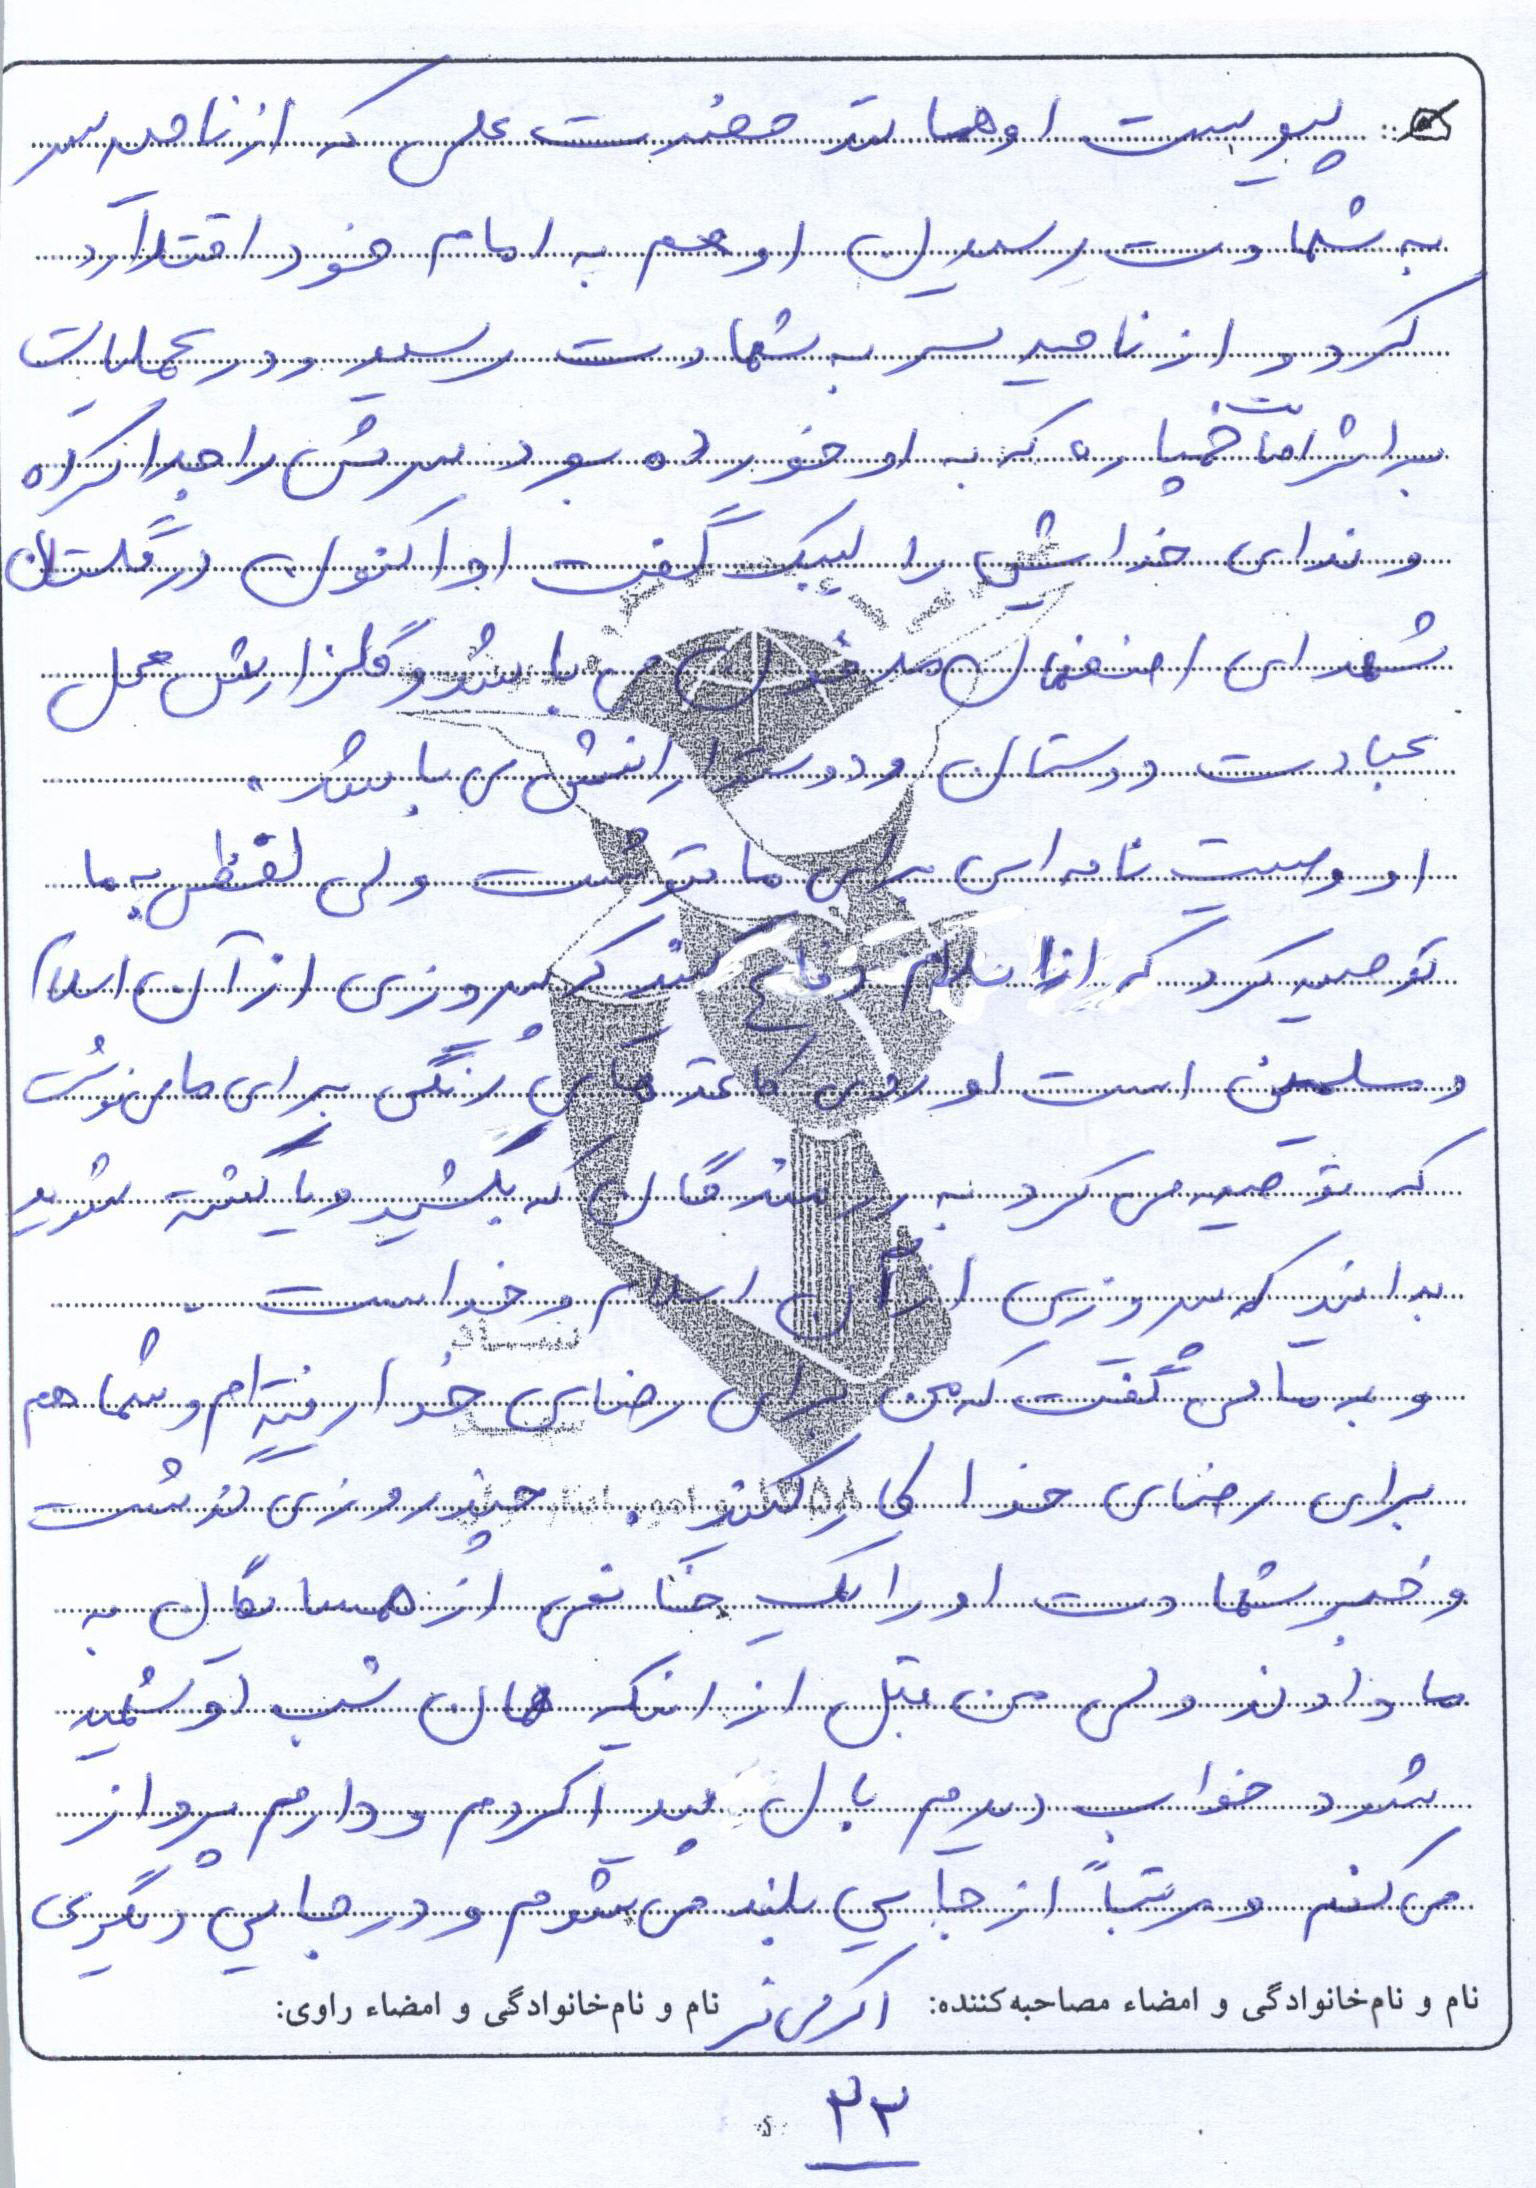 پیوست او همانند حضرت علی که از ناحیه سر
به شهادت رسیدن او هم به امام خود اقتدا
کرد و از ناحیه سر به شهادت رسید و در عملیات
بر اثر اصابت خمپاره که به او خورده بود سرش را جدا کرده
و ندای خدایش را لبیک گفت او اکنون در گلستان
شهدای اصفهان مدفون می باشد و گلزارش محل
عبادت دوستان و دوستدارانش می باشد.
او وصیت نامه ای برای ما ننوشت ولی لفظی به ما
توصیه کرد که از اسلام دفاع کنید که پیروزی از آن اسلام
و مسلمین است او روی کاغذهای رنگی برای ما می نوشت
که توصیه می کرد به رزمندگان که بکشید و یا کشته شوید
بدانید که پیروزی از آن اسلام و خداست.
و به ما می گفت که من برای رضای خدا رفته ام و شما هم
برای رضای خدا کار کنید. چند روزی گذشت
و خبر شهادت او را یک خانمی از همسایگان به
ما دادند ولی من قبل از اینکه همان شب او شهید
شود خواب دیدم بال پیدا کردم و دارم پرواز
می کنم و مرتباً از جایی بلند می شوم و در جایی دیگری
نام و نام‌خانوادگی و امضاء مصاحبه‌کننده: نام و نام‌خانوادگی و امضاء راوی:
۲۳